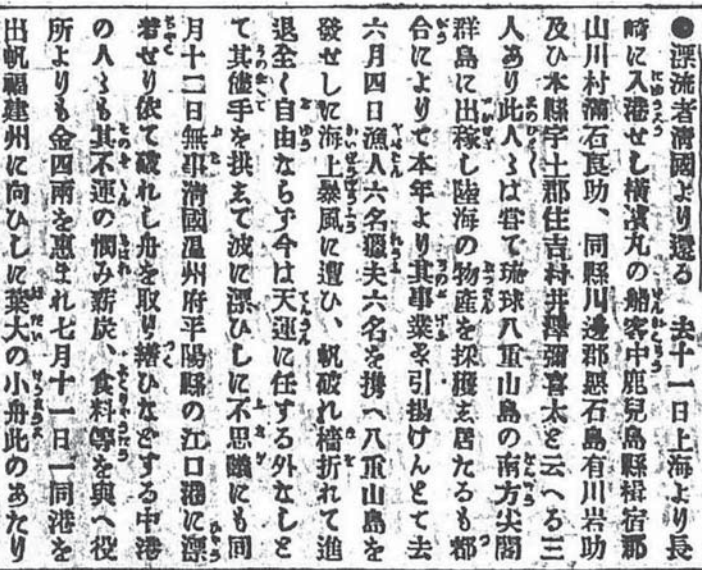 ●漂流者清國より還る　去十一日上海より長
崎に入港せし横濱丸の船客中鹿兒島縣揖宿郡
山川村彌石良助、同縣川邊郡惡石島有川岩助
及ひ本縣宇土郡住吉村井澤彌喜太と云へる三
人あり此人〻は甞て琉球八重山島の南方尖閣
群島に出稼し陸海の物産を採獲え居たるも都
合によりて本年より其事業を引揚けんとて去
六月四日漁人六名獵夫六名を携へ八重山島を
發せしに海上暴風に遭ひ、帆破れ檣折れて進
退全く自由ならず今は天運に任する外なしと
て其儘手を拱えて波に漂ひしに不思議にも同
月十二日無事清國溫州府平陽縣の江口港に漂
着せり依て破れし舟を取り繕ひなどする中港
の人〻も其不運の憫み薪炭、食料等を與へ役
所よりも金四兩を惠まれ七月十一日一同港を
出帆福建州に向ひしに葉大の小舟此のあたり